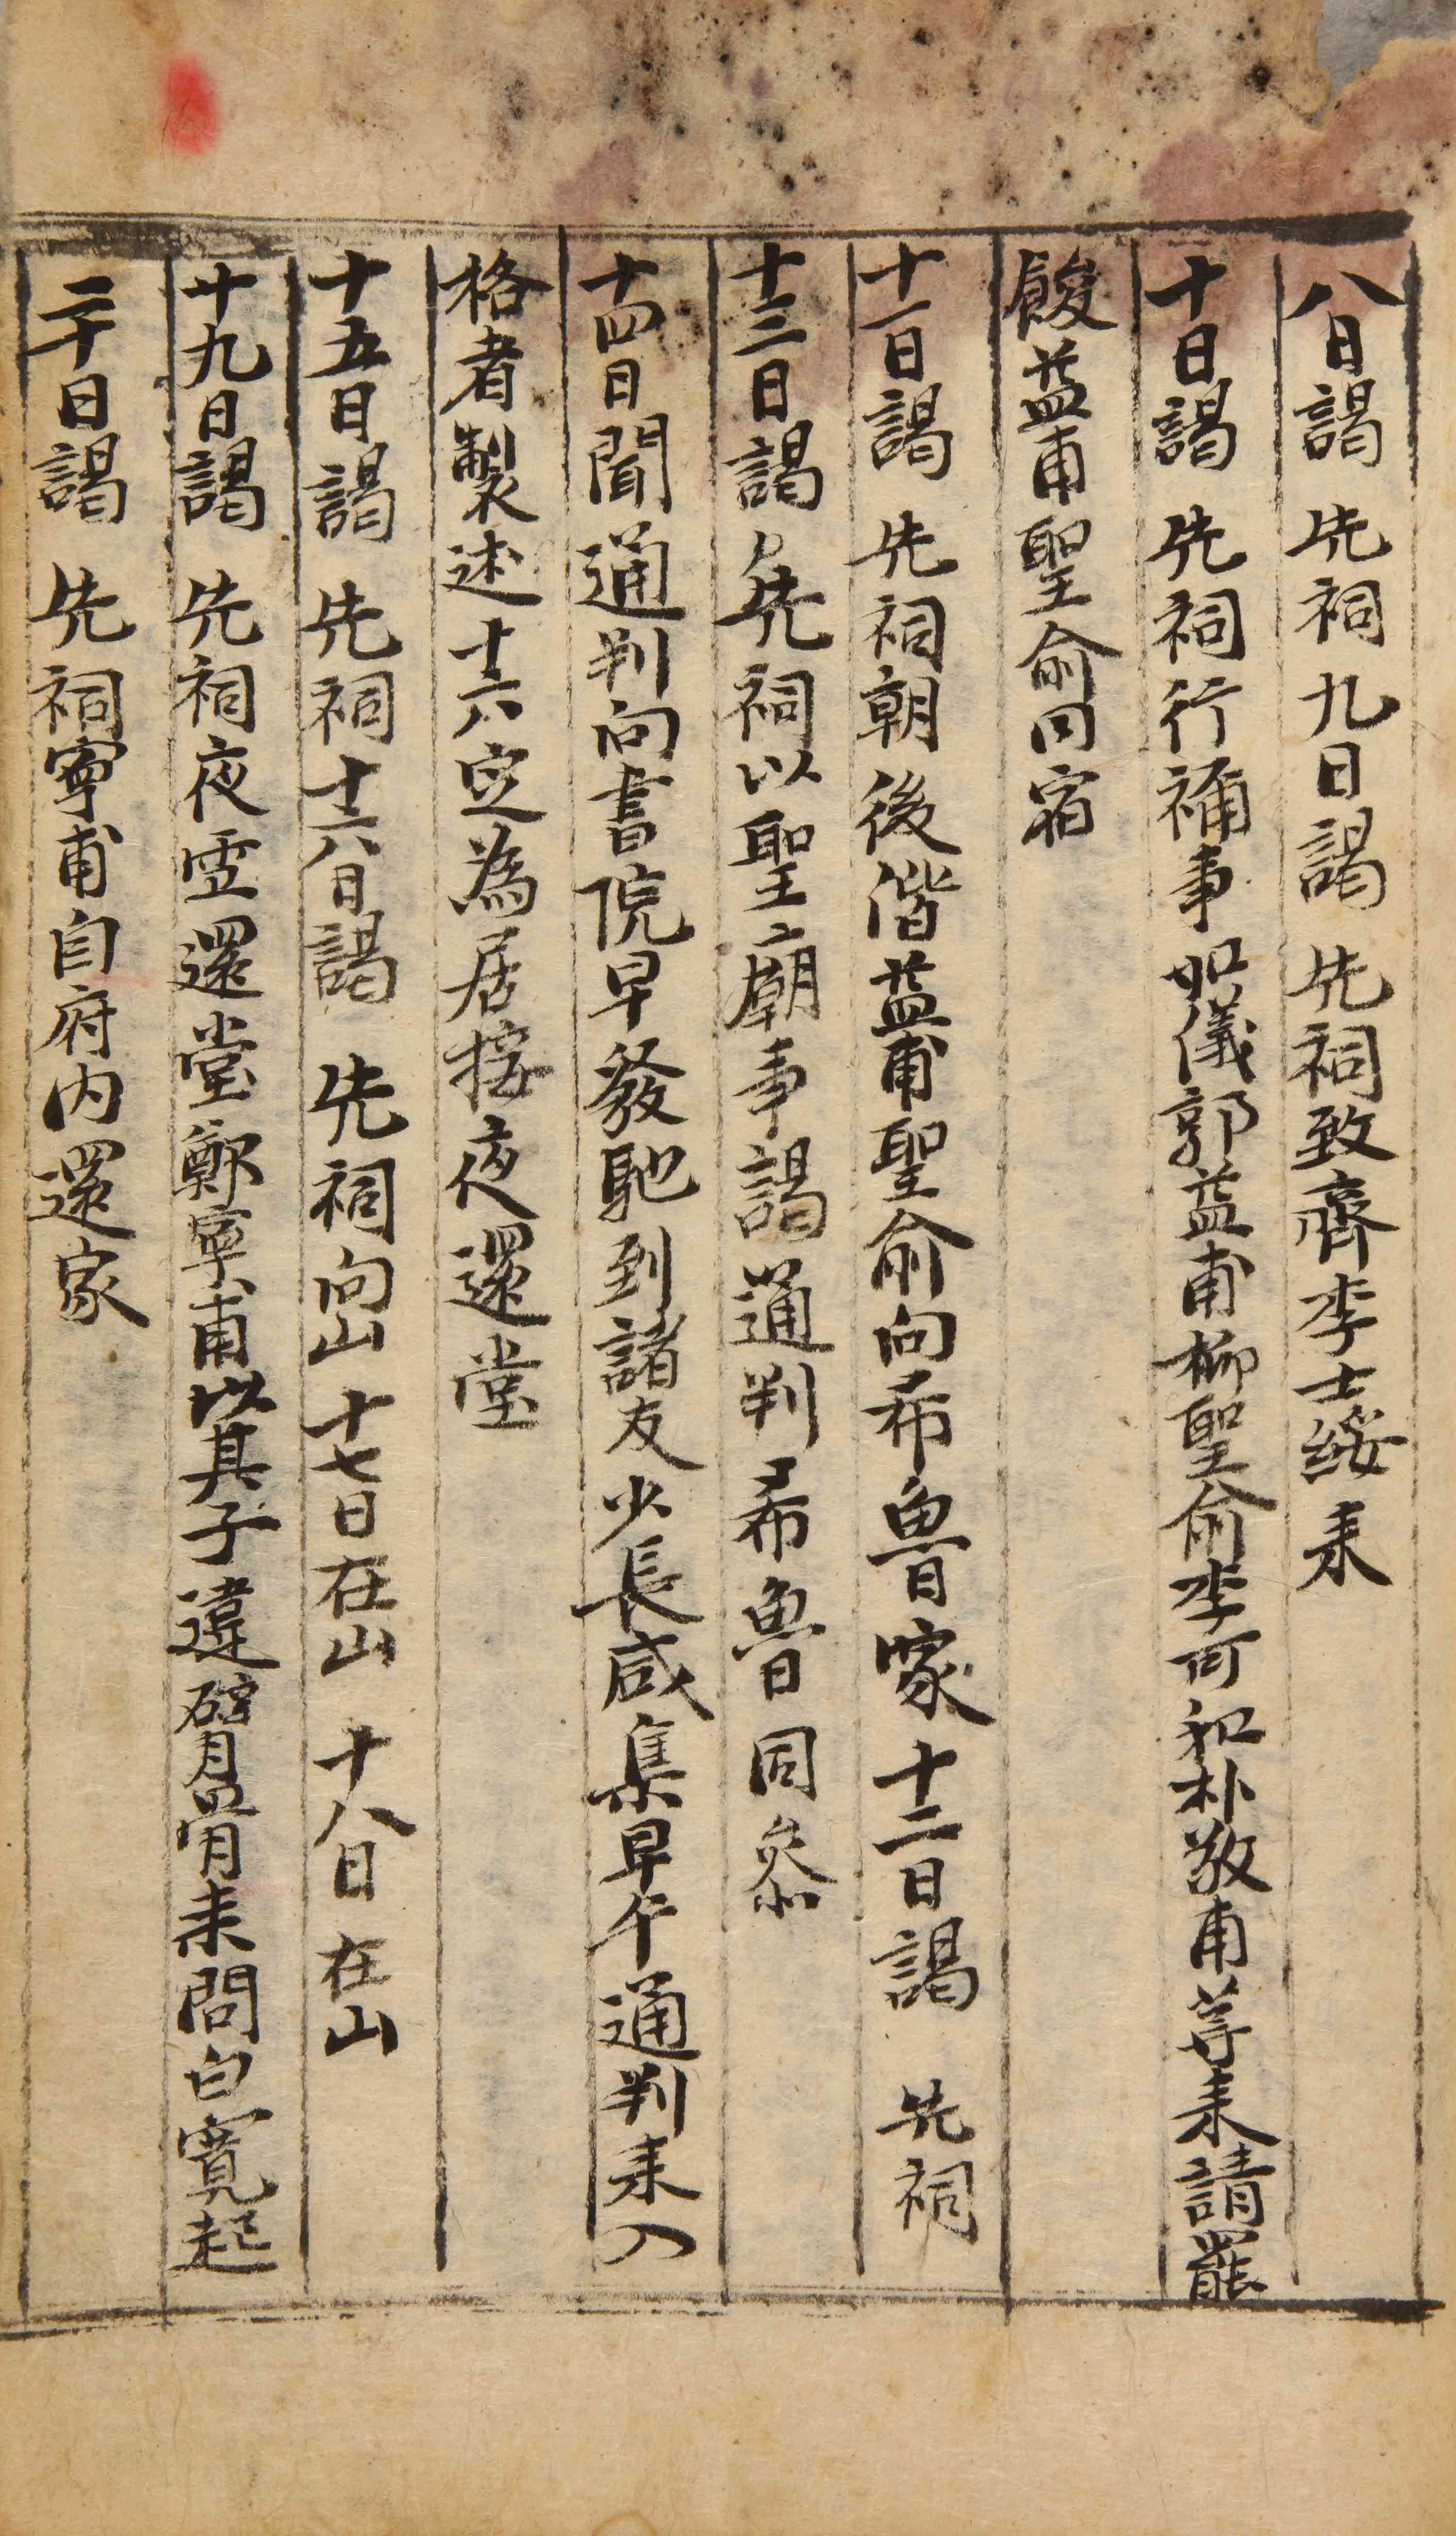 八日謁 先祠九日謁 先祠致齊李士綏来
十日謁 先祠行補事如儀郭益甫柳聖俞李可和朴敬甫等来請罷
餕益甫聖俞同宿
十一日謁 先祠朝後偕益甫聖俞向希魯家十二日謁 先祠
十三日謁 先祠以聖廟事謁通判希魯同參
十四日聞通判向書院早發馳到諸友少長咸集早午通判来入
格者製述十六定為居接夜還堂
十五日謁 先祠十六日謁 先祠向山十七日在山 十八日在山
十九日謁 先祠夜雪還堂鄭寧甫以其子違臂骨来問白寬起
二十日謁 先祠寧甫自府内還家